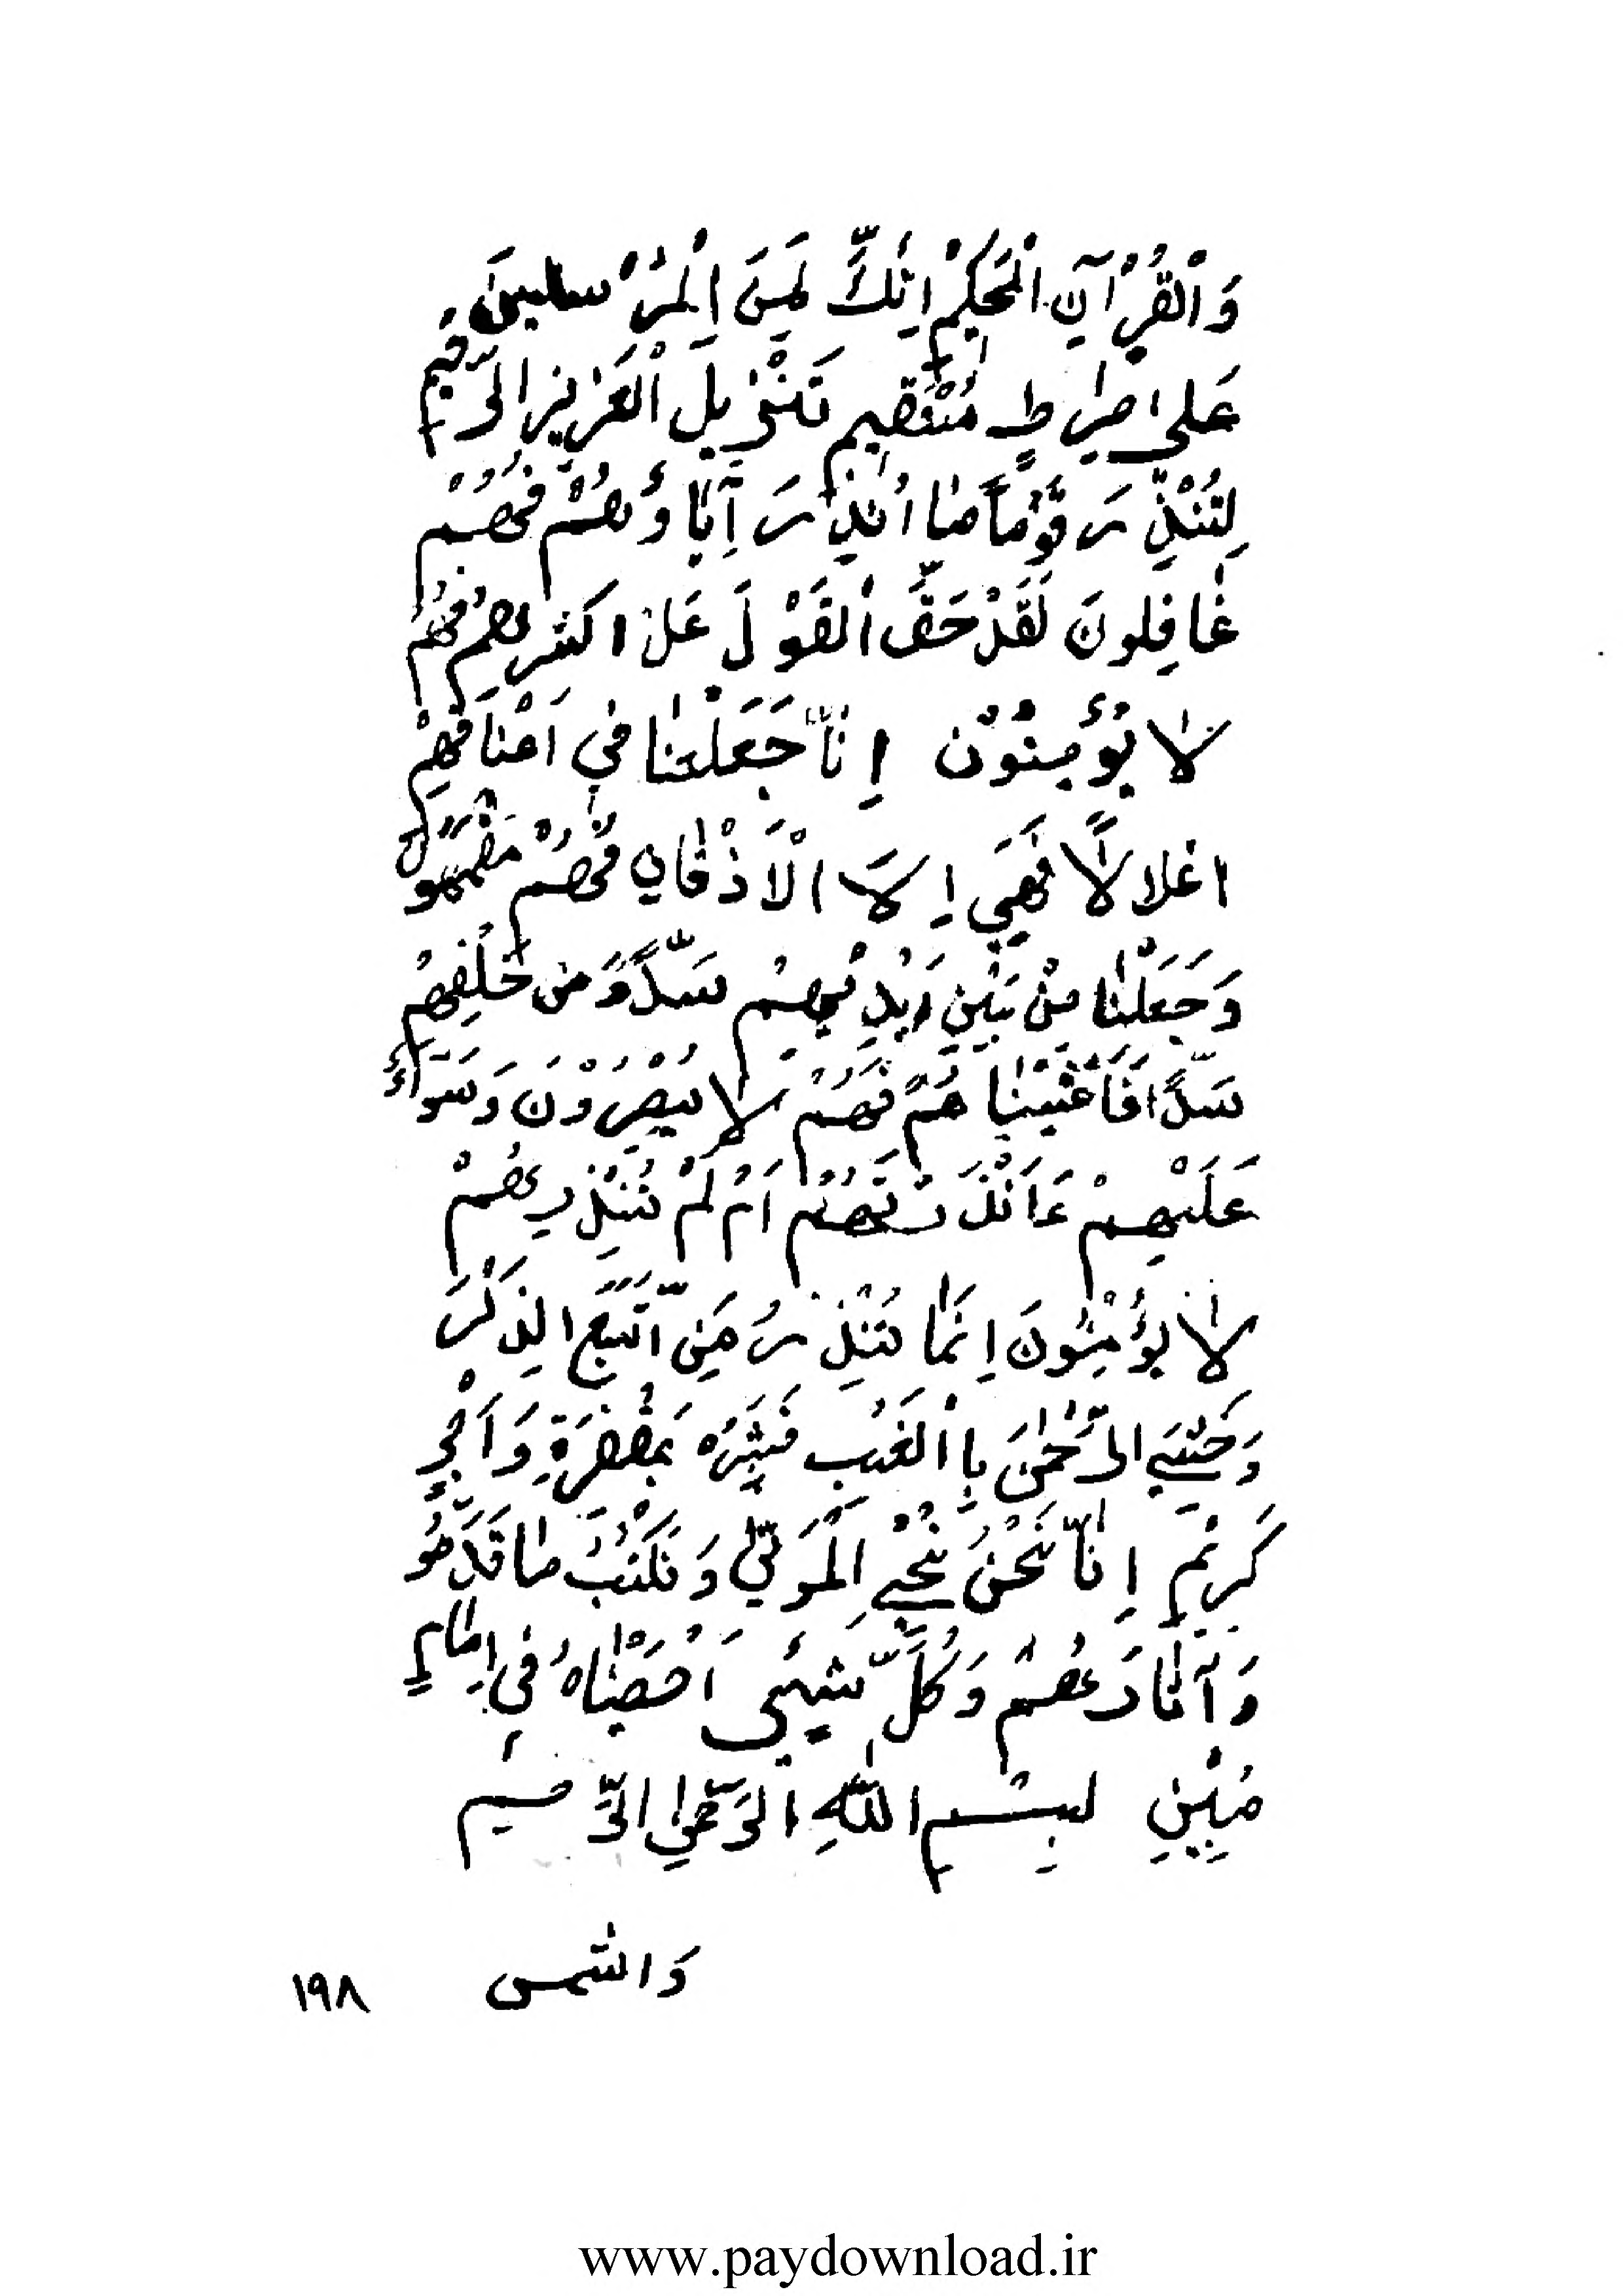 وَالْقُرْآنِ الْحَكِيمْ اِنَكَّ لَمِنَ اِلْمُرْسلینَ
عَلیٰ صِرٰاطٍ مُسْتَقِیمٍ تَنْزیلَ الْعَزیزِ الرَّحیٖمِ
لِتُنْذِرَ قَوْمًا مٰا اُنْذِرَ آبٰاؤُهُمْ فَهُمْ
غٰافِلونَ لَقَدْ حَقَّ الْقَوْلَ عَلیٰ اکثَرِهِمْ فَهُمْ
لاٰ یُؤْمِنُوْن اِنّاٰ جَعَلْنٰا فی اَعْنٰاقِهِمْ
اغلالاً فَهِیَ اِلاَ الْاَذْقٰانِ فَهُمْ مُقْمَهُونَ
وَجَعَلْنٰا مِنْ بَیْنِ اَیْدِیٖهِمْ سَدًّا وَمِنْ خَلْفِهِمْ
سَدًّا فَاَغْشَیْنٰا هُمْ فَهُمْ لاٰ یُبْصِرُوْنَ وَسَوَآءٌ
عَلَیْهِمْ ءَاَنْذَرْتَهُمْ اَمْ لَمْ تُنْذِرهُمْ
لاٰ یُؤْمِنُونَ اِنَمٰا تُنْذِرُ مَنِ اتَّبَعَ الذِکْرَ
وَخَشِیَ الرَّحْمٰنَ بِاالْغَیْب فَبَشِّرْهُ بَمَغْفِرَةِ وَاَجْرٍ
کَریْمٍ اِنّٰا نَحْنُ نُحْیِ اِلْمَوْتیٰ وَنَکْتُبُ مٰا قَدَّمُو
وَآثٰارَهُمْ وَکُلَّ شَیْئیٍ اَحْصَیْنٰاهُ فِی اِمٰامٍ
مُبِیْنٍ بِسْمِ اللّٰهِ الرَّحْمٰنِ الرَّحیم
وَالشَمس
١٩٨
www.paydownload.ir